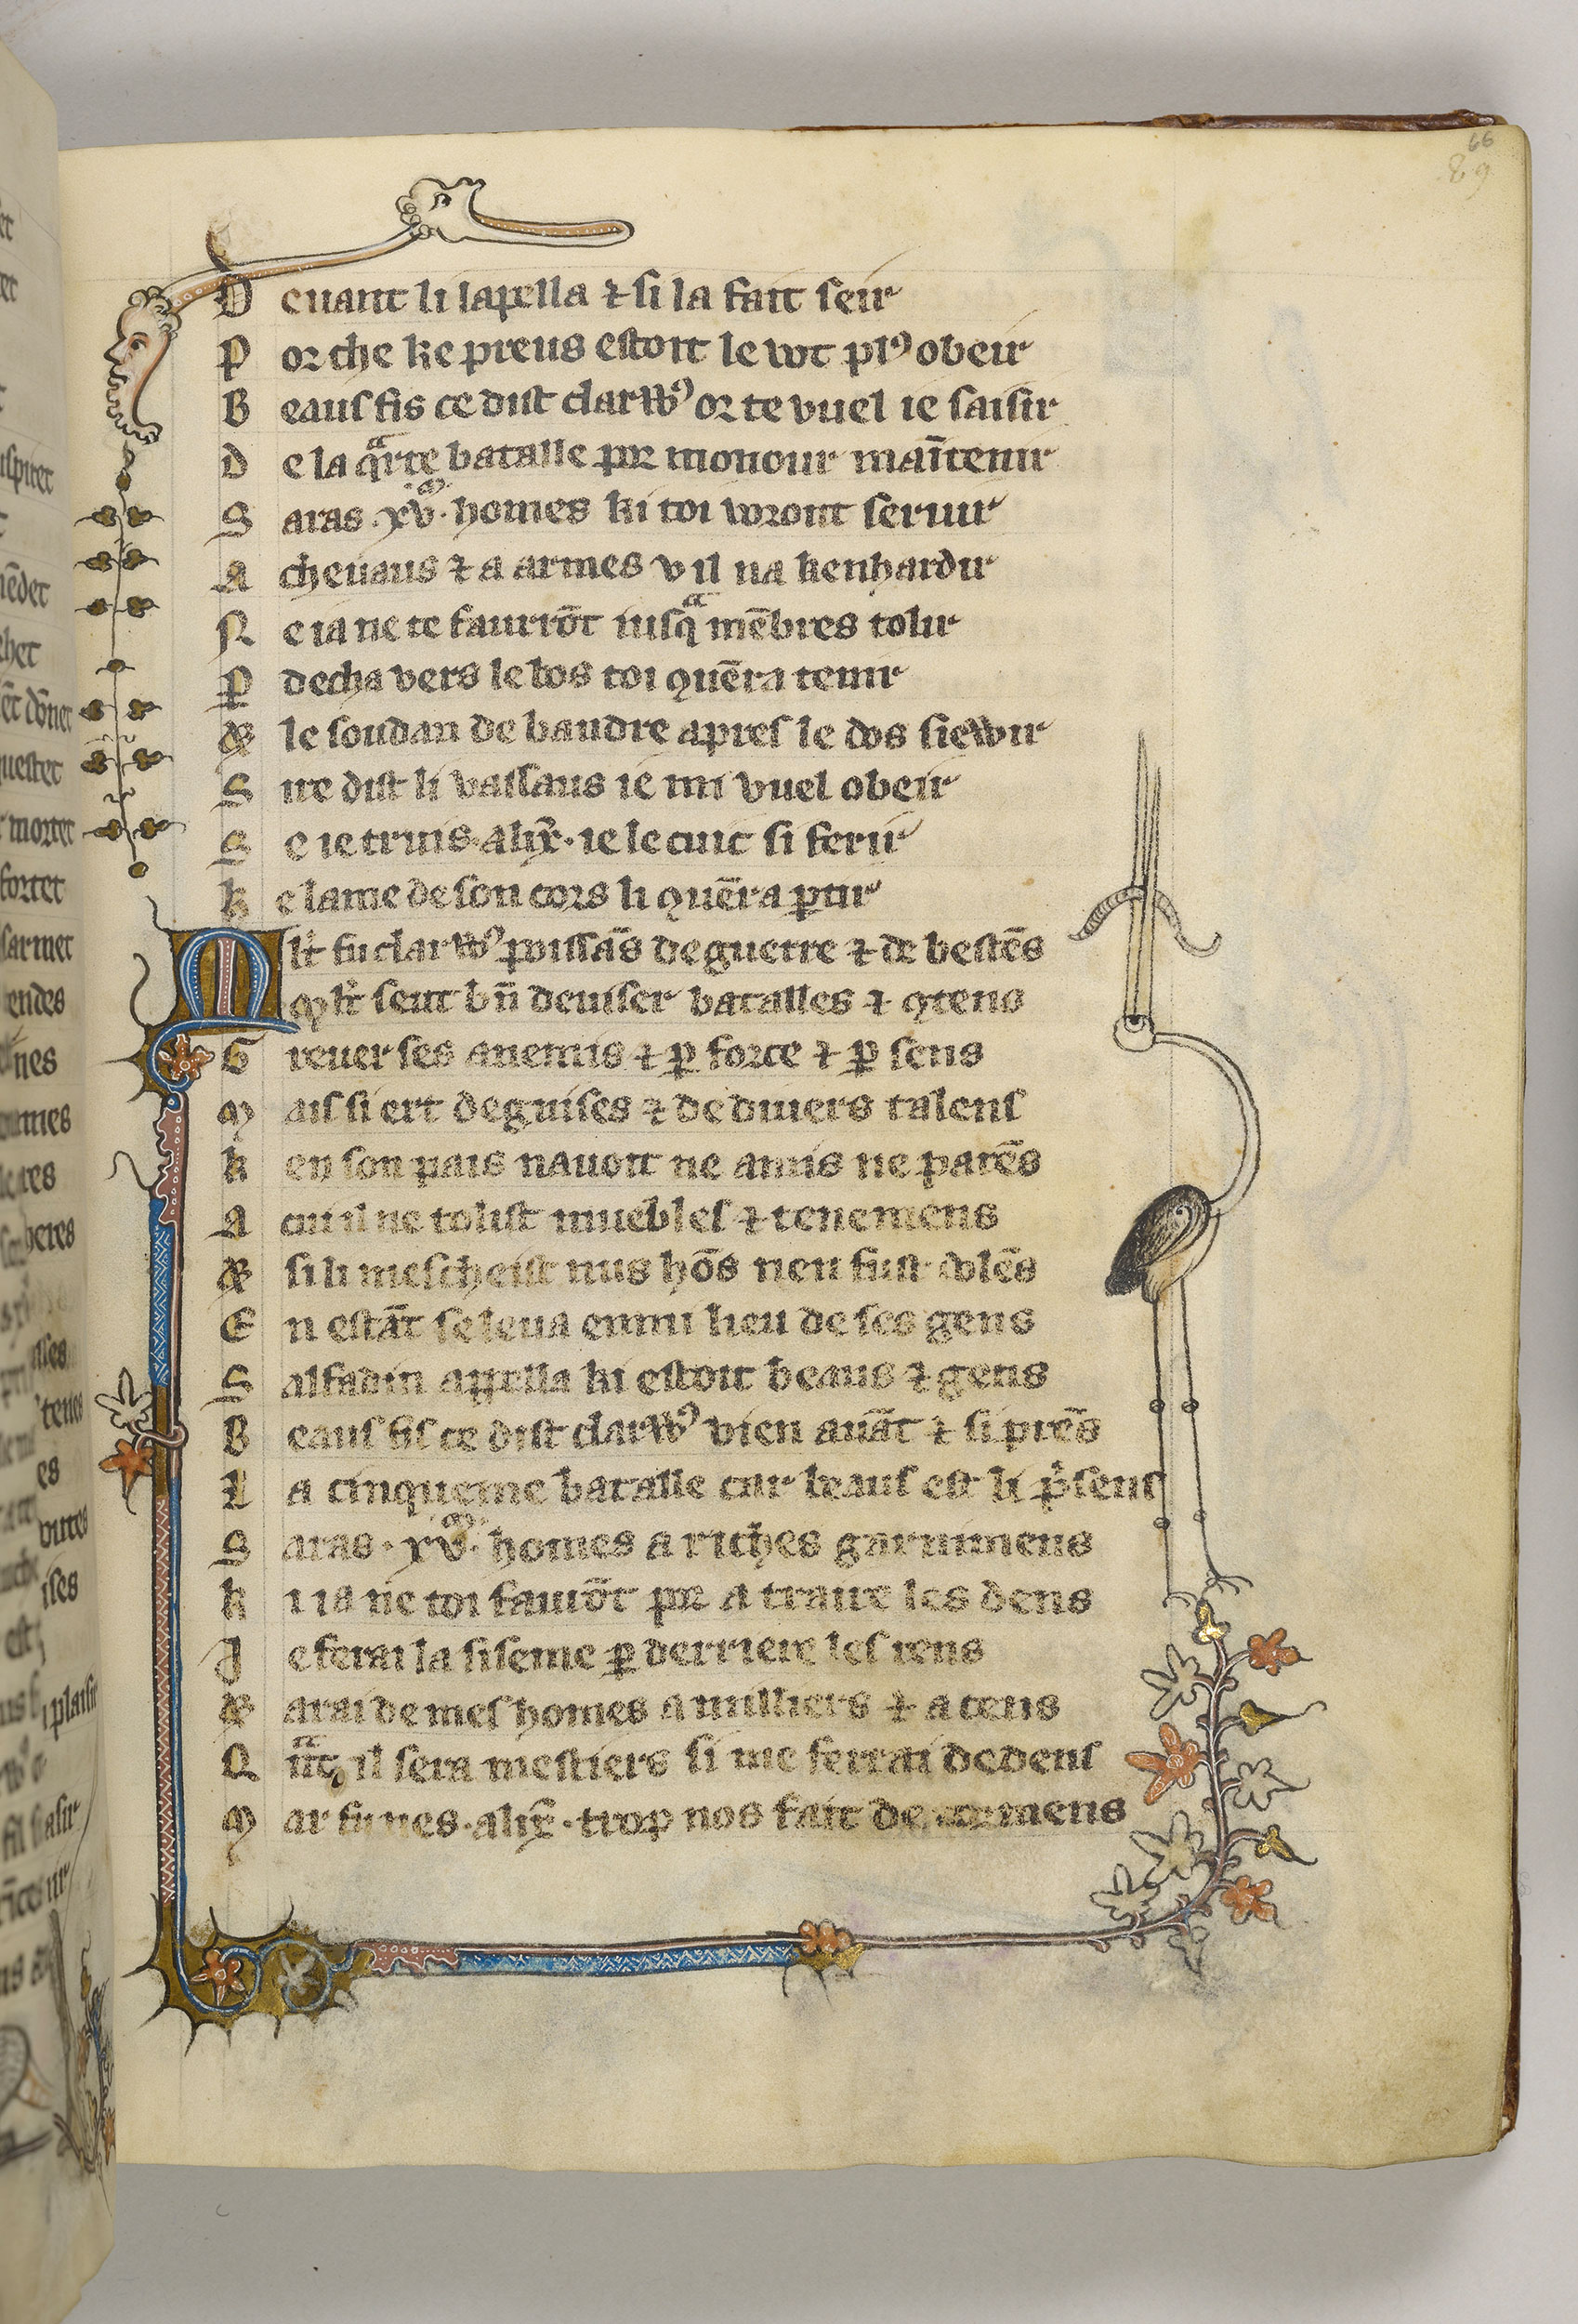 66
89
Deuant li lapella ⁊ si la fait seir
Por che ke preus estoit le vot plꝰ obeir
Beaus fis ce dist clarwꝰ or te vuel ie saisir
De la qͣrte batalle por monour maītenir
Saras .xvͫ. homes ki toi vorront seruir
A cheuaus ⁊ a armes v il na kenhardir
Ne ia ne te faurrōt iusqͣ mēbres tolir
P decha vers le bos toi ꝯuēra tenir
Et le soudan de baudre apres le dos siewir
Sire dist li vassaus ie mi vuel obeir
Se ie truis .alix̄. ie le cuic si ferir
Ke lame de son cors li ꝯuēra ꝑtir
Mlt fu clarwꝰ poissās de guerre ⁊ de bestēs
Mlt seut bn̄ deuiser batalles ⁊ ꝯtens
Greuer ses anemis ⁊ ꝑ force ⁊ ꝑ sens
Mais si ert deguises ⁊ de diuers talens
Ken son pais nauoit ne amis ne parēs
A cui il ne tolist muebles ⁊ tenemens
Et si li mescheist nus hōs nen fust dolēs
En estāt se leua enmi lieu de ses gens
Salfadin appella ki estoit beaus ⁊ gens
Beaus fis ce dist clarwꝰ vien auāt ⁊ si prēs
La cinqueme batalle car beaus est li p̓sens
Saras .xvͫ. homes a riches garnimens
Ki ia ne toi fauront por a traire les dens
Je ferai la siseme ꝑ derriere les rens
Et arai de mes homes a milliers ⁊ a cens
Qn̄t il sera mestiers si me ferrai dedens
Mar fu nes .alix̄. trop nos fait de mens